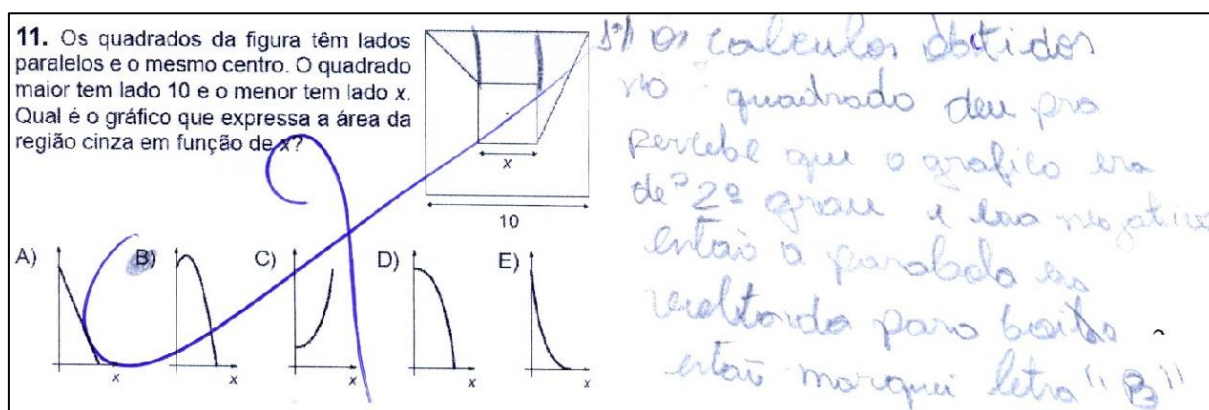 11. Os quadrados da figura têm lados
paralelos e o mesmo centro. O quadrado
maior tem lado 10 e o menor tem lado x.
Qual é o gráfico que expressa a área da
região cinza em função de x?
x
10
A)
B)
C)
D)
E)
x
x
x
x
x
os calculos obtidos
no quadrado deu pra
percebe que o grafico era
de 2º grau e era negativo
então a parabola
para baixo
então marquei letra "B"